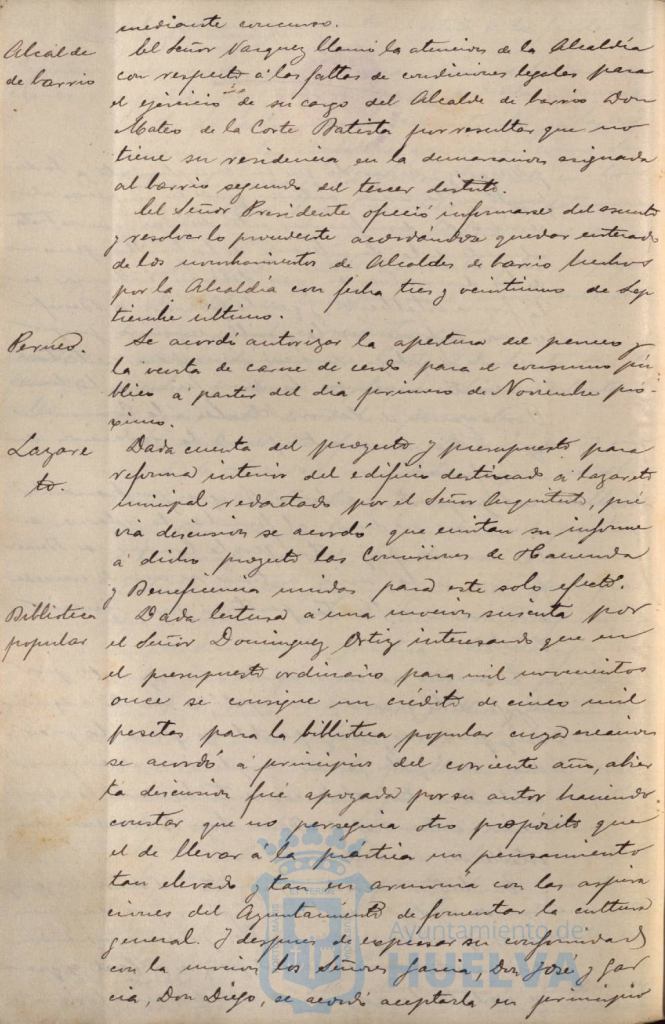 mediante concurso.
Alcalde de barrio
El Señor Vazquez llamó la atencion de la Alcaldía
con respecto á las faltas de condiciones legales para
el ejercicio de su cargo del Alcalde de barrio Don
Mateo de la Corte Batista por resultar que no
tiene su residencia en la demarcacion asignada
al barrio segundo del tercer distrito.
El Señor Presidente ofreció informarse del asunto
y resolver lo procedente acordándose quedar enterado
de los nombramientos de Alcaldes de barrio hechos
por la Alcaldía con fecha tres y veintiuno de Sep
tiembre último.
Perneo.
Se acordó autorizar la apertura del perneo y
la venta de carne de cerdo para el consumo pú-
blico á partir del dia primero de Noviembre pró-
ximo.
Lazare
to.
Dada cuenta del proyecto y presupuesto para
reforma interior del edificio destinado á lazareto
municipal redactado por el Señor Arquitecto, pré
via discusion se acordó que emitan su informe
á dicho proyecto las Comisiones de Hacienda
y Beneficencia unidas para este solo efecto.
Biblioteca
popular
Dada lectura á una mocion suscrita por
el Señor Dominguez Ortiz interesando que en
el presupuesto ordinario para mil novecientos
once se consigne un crédito de cinco mil
pesetas para la biblioteca popular cuya creacion
se acordó á principios del corriente año, abier
ta discusion fué apoyada por su autor haciendo
constar que no perseguia otro propósito que
el de llevar á la práctica un pensamiento
tan elevado y tan en armonia con las aspira
ciones del Ayuntamiento de fomentar la cultura
general. Y despues de expresar su conformidad
con la mocion los Señores Garcia, Don José y Gar
cia, Don Diego, se acordó aceptarla en principio
Ayuntamiento de
HUELVA